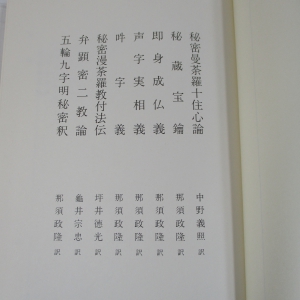 秘密曼荼羅十住心論 中野義照 訳
秘蔵宝鑰 那須政隆 訳
即身成仏義 那須政隆 訳
声字実相義 那須政隆 訳
吽字義 那須政隆 訳
秘密漫荼羅教付法伝 坪井徳光 訳
弁顕密二教論 亀井宗忠 訳
五輪九字明秘密釈 那須政隆 訳